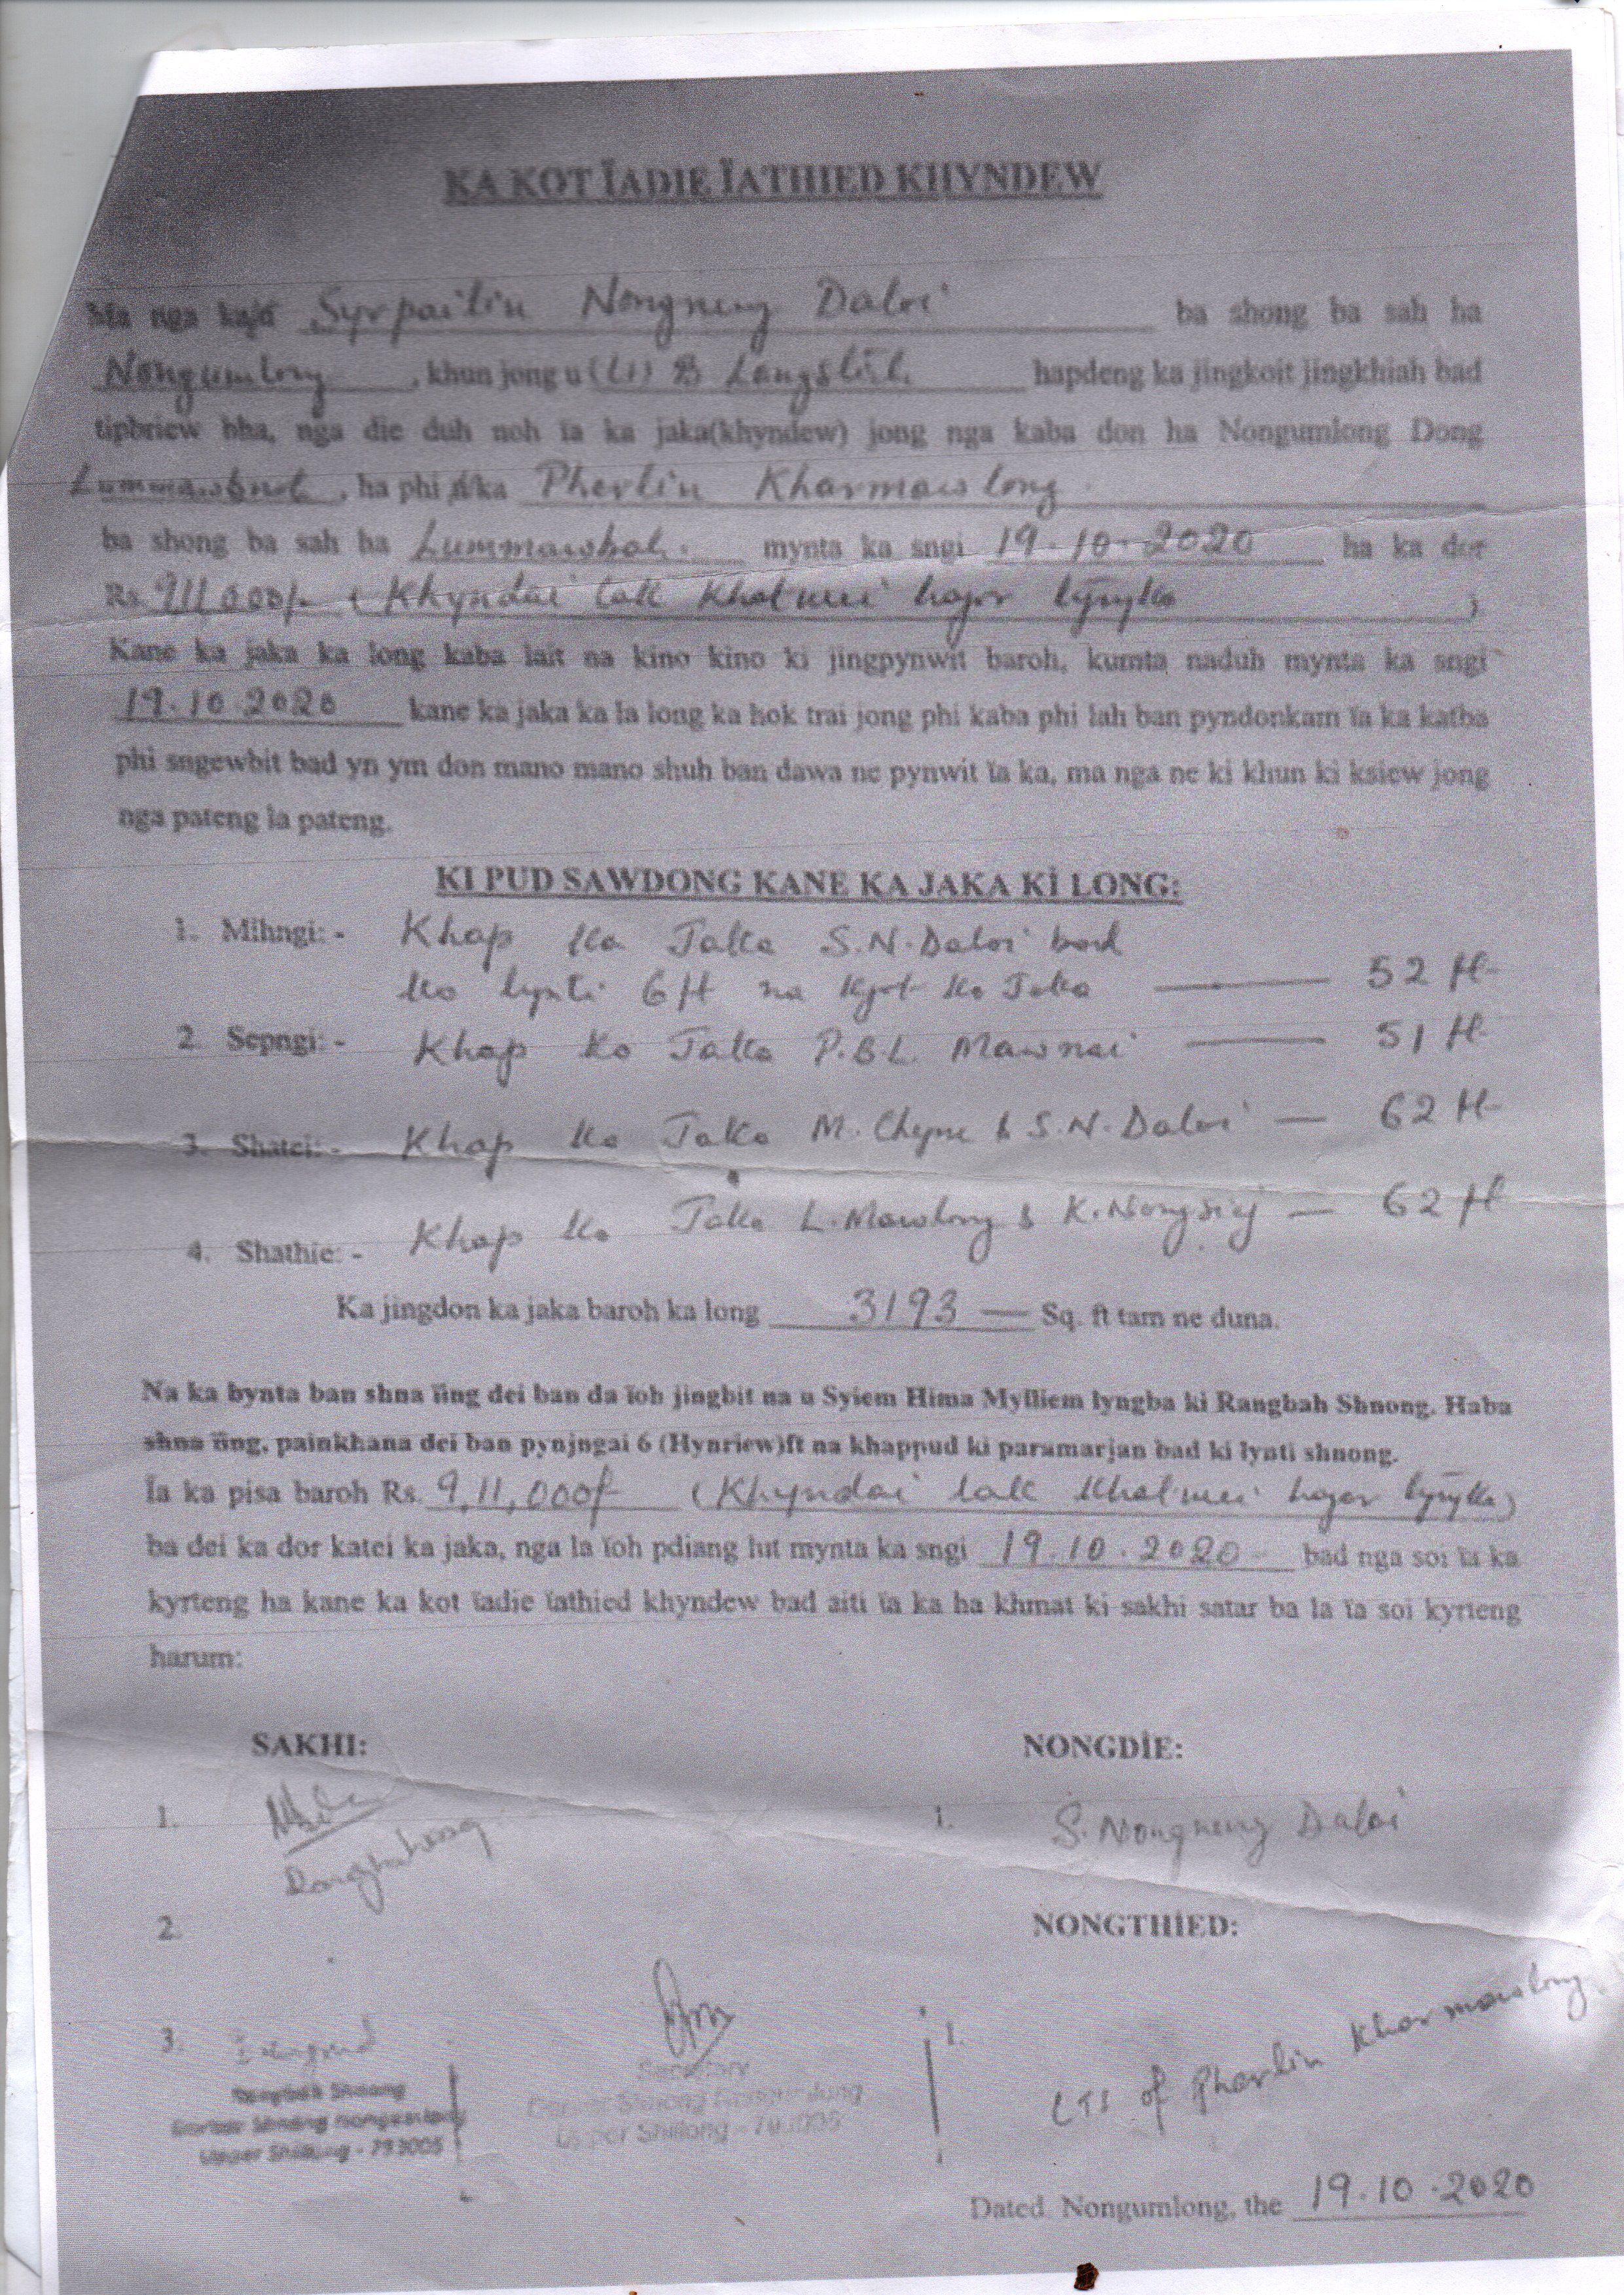 KA KOT ÏADIE ÏATHIED KHYNDEW
Ma nga ka/u Syrpailin Nongneng Daloi ba shong ba sah ha
Nongumlong, khun jong u (L) B Langstih hapdeng ka jingkoit jingkhiah bad
tipbriew bha, nga die duh noh ïa ka jaka(khyndew) jong nga kaba don ha Nongumlong Dong
Lummawbah, ha phi u/ka Pherlin Kharmawlong
ba shong ba sah ha Lummawbah. mynta ka sngi 19.10.2020 ha ka dor
Rs. 911000/- (Khyndai lak Khatwei hajar tyngka )
Kane ka jaka ka long kaba lait na kino kino ki jingpynwit baroh, kumta naduh mynta ka sngi
19.10.2020 kane ka jaka ka la long ka hok trai jong phi kaba phi lah ban pyndonkam ïa ka katba
phi sngewbit bad yn ym don mano mano shuh ban dawa ne pynwit ïa ka, ma nga ne ki khun ki ksiew jong
nga pateng ïa pateng.
KI PUD SAWDONG KANE KA JAKA KI LONG:
1. Mihngi: - Khap ka Jaka S.N.Daloi bad
ka lynti 6 ft na Kper ka Jaka — 52 ft
2. Sepngi: - Khap ka Jaka P.B.L. Mawnai — 51 ft
3. Shatei: - Khap ka Jaka M. Chyne & S.N.Daloi — 62 ft
4. Shathie: - Khap ka Jaka L.Mawlong & K.Nongsiej — 62 ft
Ka jingdon ka jaka baroh ka long 3193 — Sq. ft tam ne duna.
Na ka bynta ban shna ïing dei ban da ïoh jingbit na u Syiem Hima Mylliem lyngba ki Rangbah Shnong. Haba
shna ïing, painkhana dei ban pynjngai 6 (Hynriew)ft na khappud ki paramarjan bad ki lynti shnong.
Ïa ka pisa baroh Rs. 9,11,000/- (Khyndai lak Khatwei hajar tyngka)
ba dei ka dor katei ka jaka, nga la ïoh pdiang lut mynta ka sngi 19.10.2020 - bad nga soi ïa ka
kyrteng ha kane ka kot ïadie ïathied khyndew bad aiti ïa ka ha khmat ki sakhi satar ba la ïa soi kyrteng
harum:
SAKHI: NONGDIE:
1. 1. S. Nongneng Daloi
2. NONGTHIED:
3. 1. LTI of Pherlin Kharmawlong
Secretary
Rangbah Shnong Dorbar Shnong Nongumlong
Dorbar Shnong Nongumlong Upper Shillong - 793005
Upper Shillong - 793005
Dated Nongumlong, the 19.10.2020